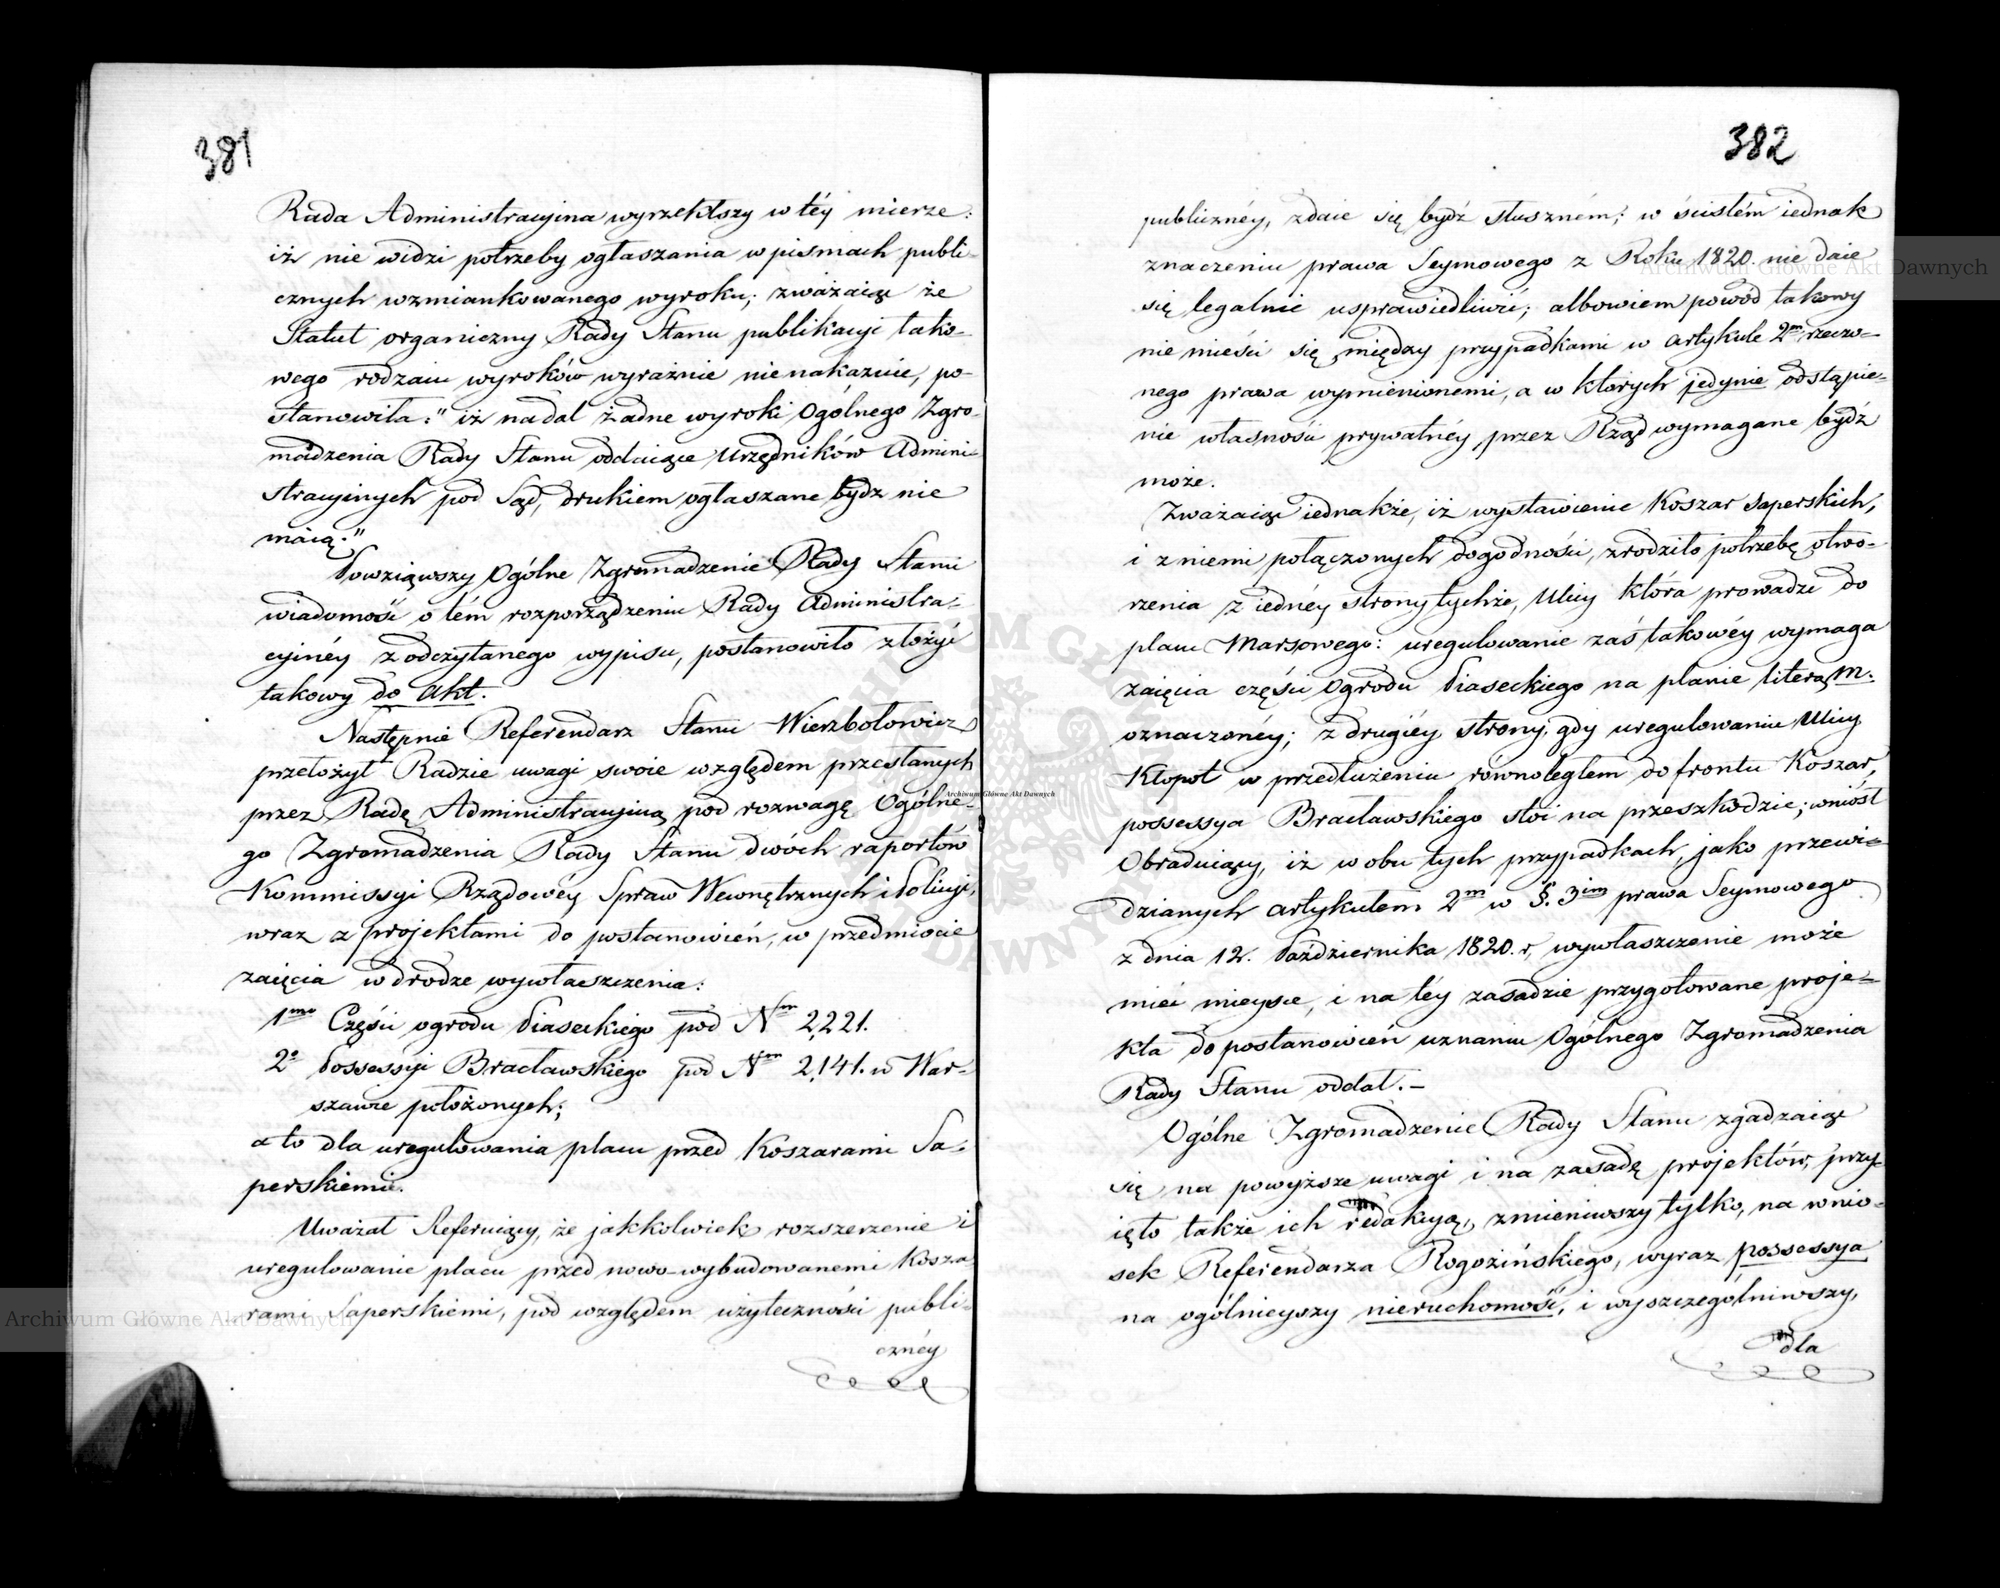 381
Rada Administracyina wyrzekłszy w téy mierze:
iż nie widzi potrzeby ogłaszania w pismach publi-
cznych wzmiankowanego wyroku; zważaiąc że
Statut organiczny Rady Stanu publikacyi tako-
wego rodzaiu wyroków wyraźnie nie nakazuie, po-
stanowiła: "iż nadal żadne wyroki Ogólnego Zgro-
madzenia Rady Stanu oddaiące Urzędników Admini-
stracyinych pod Sąd, drukiem ogłaszane bydź nie
maią."
Powziąwszy Ogólne Zgromadzenie Rady Stanu
wiadomość o tém rozporządzeniu Rady Administra-
cyinéy z odczytanego wypisu, postanowiło złożyć
takowy do Akt.
Następnie Referendarz Stanu Wierzbołowicz
przełożył Radzie uwagi swoie względem przesłanych
przez Radę Administracyiną pod rozwagę Ogólne-
go Zgromadzenia Rady Stanu dwóch raportów
Kommissyi Rządowéy Spraw Wewnętrznych i Policyi,
wraz z projektami do postanowień, w przedmiocie
zaięcia w drodze wywłaszczenia:
1mo Części ogrodu Piaseckiego pod Nm 2,221.
2o Possessyi Bracławskiego pod Nm 2,141. w War-
szawie położonych;
a to dla uregulowania placu przed Koszarami Sa-
perskiemi.
Uważał Referuiący, że jakkolwiek rozszerzenie i
uregulowanie placu przed nowo-wybudowanemi Kosza
rami Saperskiemi, pod względem użyteczności publi-
cznéy
382
publicznéy, zdaie się bydź słuszném; w ścisłém iednak
znaczeniu prawa Seymowego z Roku 1820. nie daie
się legalnie usprawiedliwić; albowiem powód takowy
nie mieści się między przypadkami w artykule 2m rzeczo-
nego prawa wymienionemi, a w których jedynie odstąpie-
nie własności prywatnéy przez Rząd wymagane bydź
może.
Zważaiąc iednakże, iż wystawienie Koszar Saperskich,
i z niemi połączonych dogodności, zrodziło potrzebę otwo-
rzenia z iednéy strony tychże, Ulicy która prowadzi do
placu Marsowego: uregulowanie zaś takowéy wymaga
zaięcia części Ogrodu Piaseckiego na planie literą m.
oznaczonéy; z drugiéy strony, gdy uregulowaniu Ulicy
Kłopot w przedłużeniu równoległem do frontu Koszar,
possessya Bracławskiego stoi na przeszkodzie; wniósł
Obraduiący, iż w obu tych przypadkach, jako przewi-
dzianych artykułem 2m w §. 3im prawa Seymowego
z dnia 12. Października 1820. r, wywłaszczenie może
mieć mieysce, i na téy zasadzie przygotowane proje-
kta do postanowień uznaniu Ogólnego Zgromadzenia
Rady Stanu oddał.-
Ogólne Zgromadzenie Rady Stanu zgadzaiąc
się na powyższe uwagi i na zasadę projektów, przy-
ięło także ich redakcyą, zmieniwszy tylko, na wnio-
sek Referendarza Rogozińskiego, wyraz possessya
na ogólnieyszy nieruchomość, i wyszczególniwszy,
dla
Archiwum Główne Akt Dawnych
Archiwum Główne Akt Dawnych
Archiwum Główne Akt Dawnych